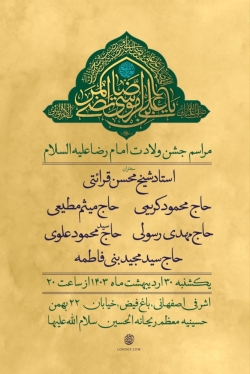 یا علی بن موسی الرضا المرتضی
مراسم جشن ولادت امام رضا علیه السلام
استاد شیخ محسن قرائتی
حاج محمود کریمی حاج میثم مطیعی
حاج مهدی رسولی سید محمود علوی
حاج سید مجید بنی فاطمه
یکشنبه ۳۰ اردیبهشت ماه ۱۴۰۳ از ساعت ۲۰
اشرفی اصفهانی، باغ فیض، خیابان ۲۲ بهمن
حسینیه معظم ریحانه الحسین سلام الله علیها